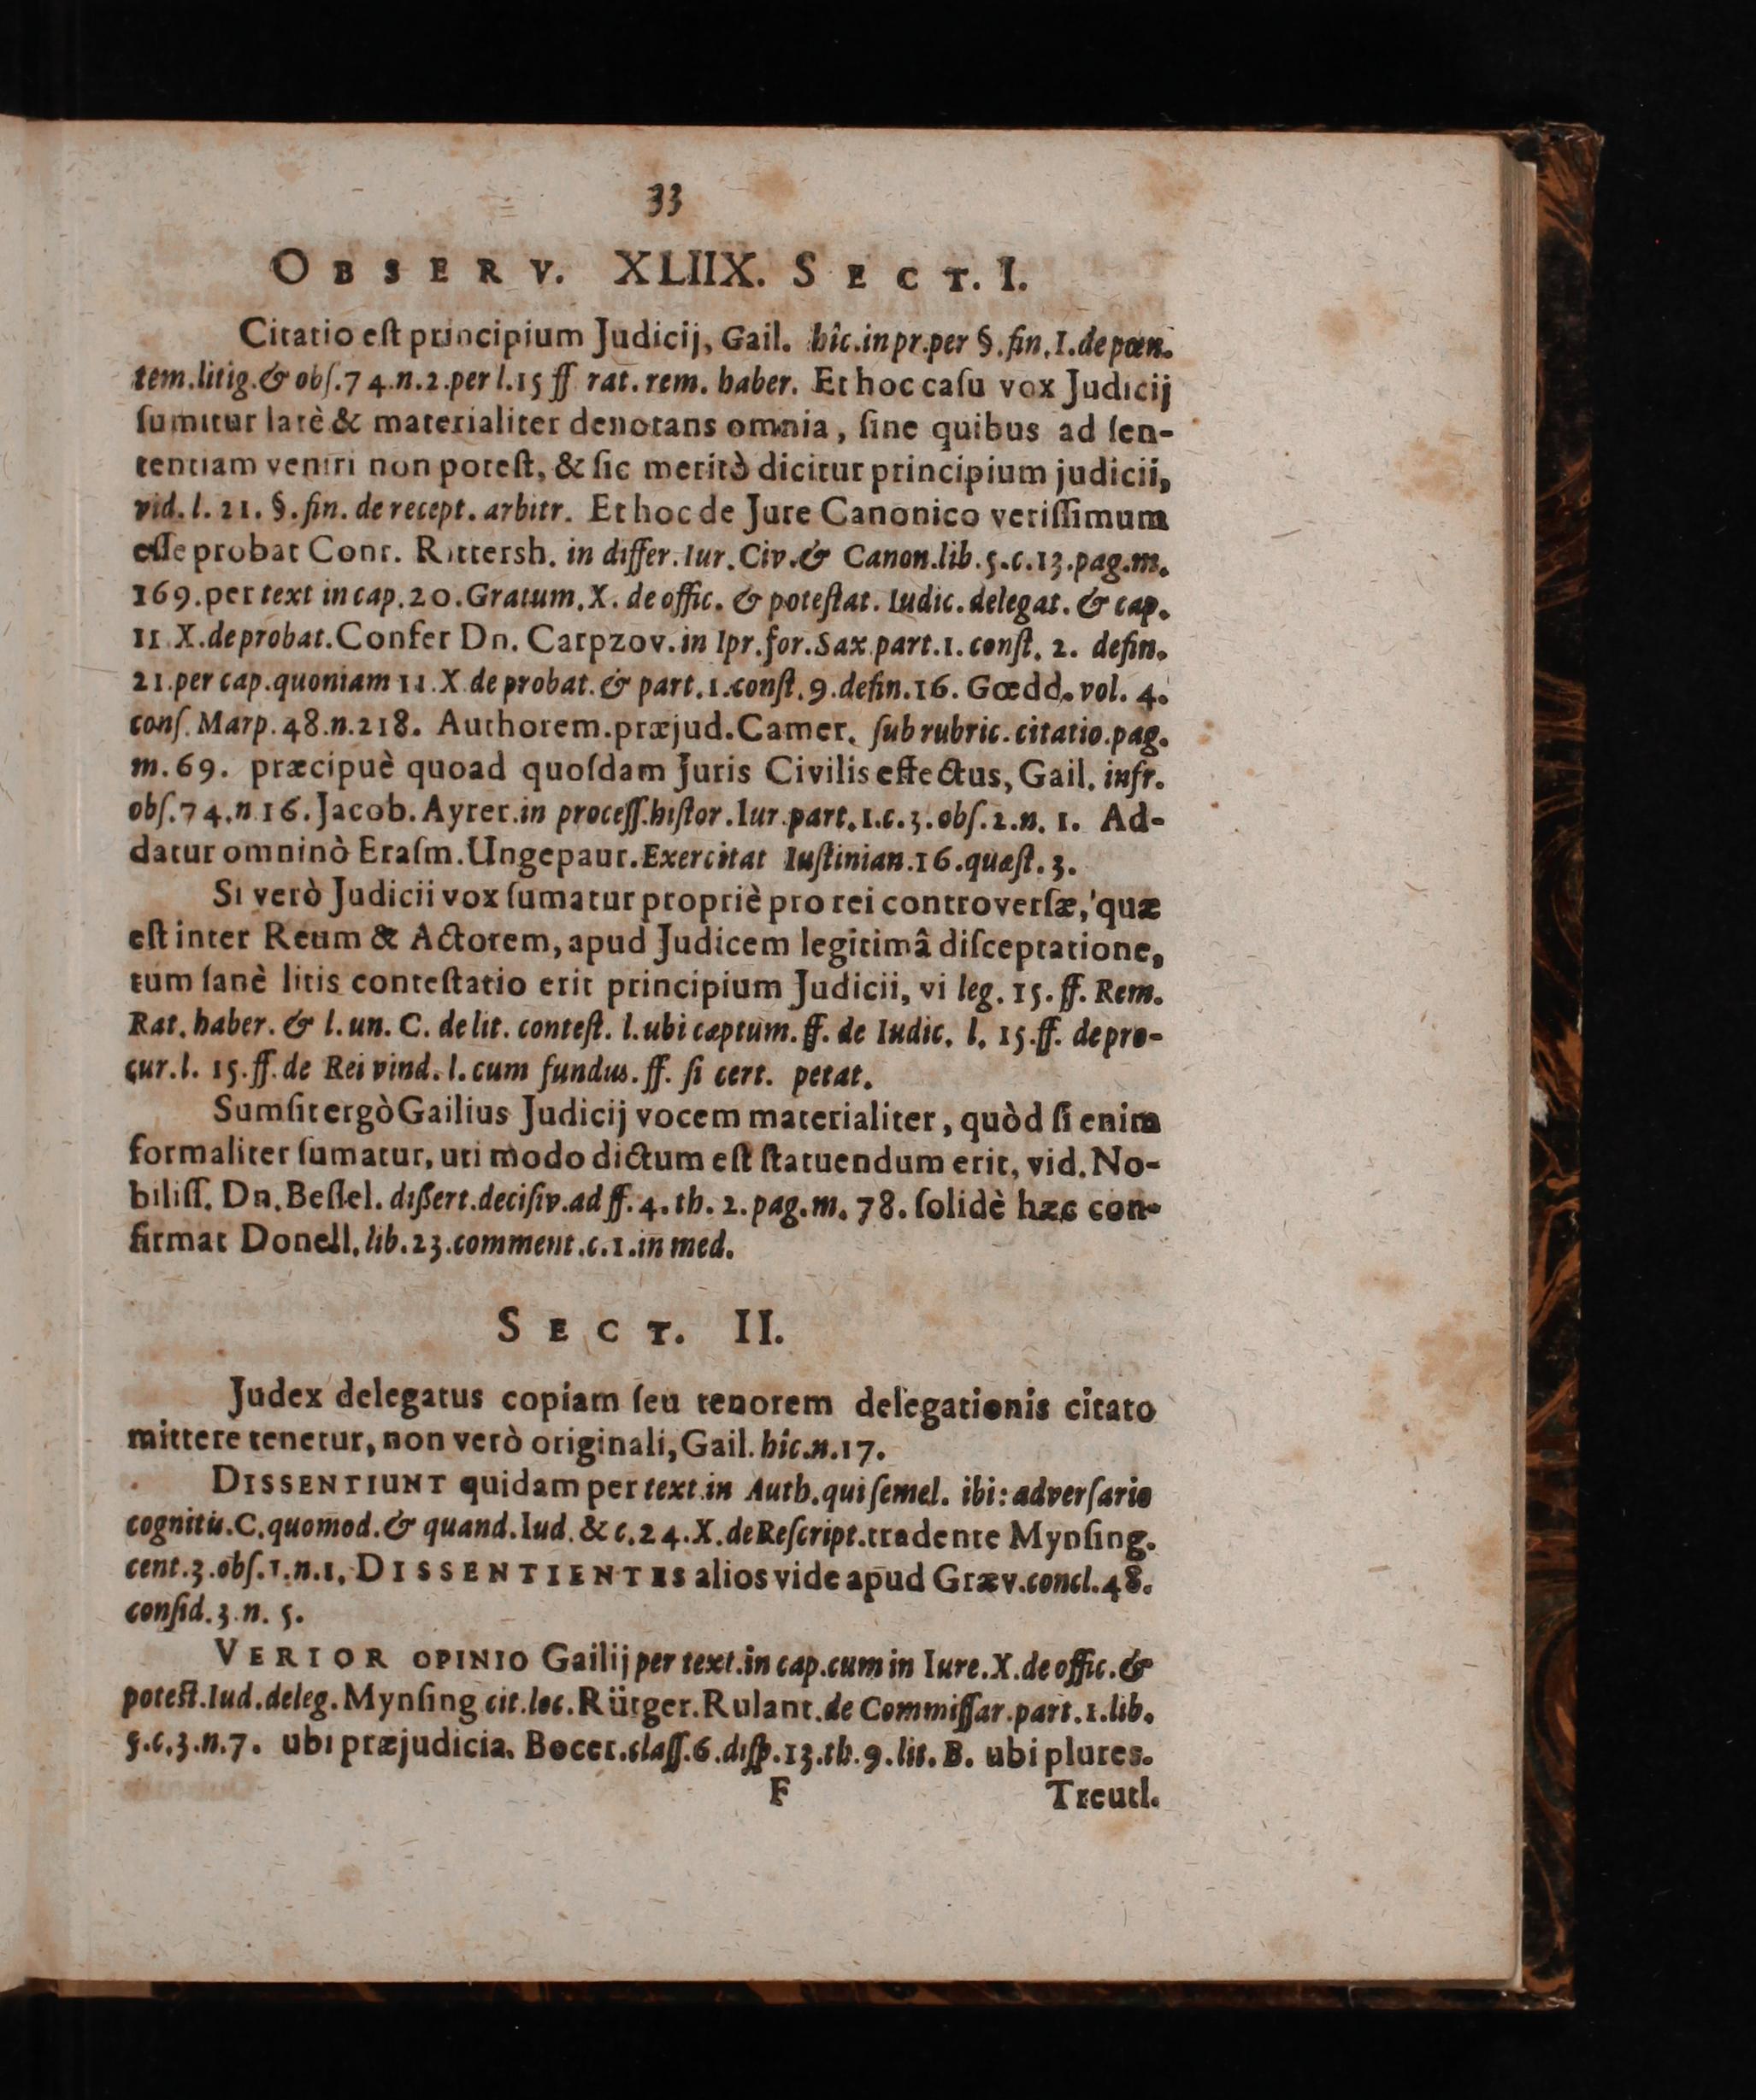 33
OBSERV. XLIIX. SECT. I.
Citatio eſt principium Judicij, Gail. hîc.in pr.per §.fin.I.de pœn.
tem.litig.& obſ.74.n.2.per l.15 ff rat. rem. haber. Et hoc caſu vox Judicij
ſumitur latè & materialiter denotans omnia, ſine quibus ad ſen-
tentiam veniri non poteſt, & ſic meritò dicitur principium judicii,
vid. l. 21. §. fin. de recept. arbitr. Et hoc de Jure Canonico veriſſimum
eſſe probat Conr. Rittersh. in differ.Iur.Civ.& Canon.lib.5.c.13.pag.m.
169.per text in cap.20.Gratum.X. de offic. & poteſtat. Iudic.delegat. & cap.
11 X.de probat. Confer Dn. Carpzov. in Ipr.for.Sax part.1.conſt. 2. defin.
21.per cap.quoniam 11.X.de probat.& part.1.conſt.9.defin.16. Gœdd. vol. 4.
conſ. Marp.48.n.218. Authorem.præjud.Camer. ſub rubric.citatio.pag.
m.69. præcipuè quoad quoſdam Juris Civilis effectus, Gail. infr.
obſ.74.n 16. Jacob. Ayrer.in proceſſ.hiſtor.Iur.part.1.c.3.obſ.2.n. 1. Ad-
datur omninò Eraſm.Ungepaur.Exercitat Iuſtinian.16.quæſt.3.
Si verò Judicii vox ſumatur propriè pro rei controverſæ, quæ
eſt inter Reum & Actorem, apud Judicem legitimâ diſceptatione,
tum ſanè litis conteſtatio erit principium Judicii, vi leg. 15. ff. Rem.
Rat. haber. & l. un. C. de lit. conteſt. l. ubi cæptum. ff. de Iudic. l. 15. ff. de pro-
cur.l. 15. ff. de Rei vind. l. cum fundus. ff. ſi cert. petat.
Sumſit ergò Gailius Judicij vocem materialiter, quòd ſi enim
formaliter ſumatur, uti modo dictum eſt ſtatuendum erit, vid. No-
biliſſ. Dn. Beſſel. diſſert.deciſiv.ad ff. 4. th. 2. pag.m. 78. ſolidè hæc con-
firmat Donell. lib.23.comment.c.1.in med.
SECT. II.
Judex delegatus copiam ſeu tenorem delegationis citato
mittere tenetur, non verò originali, Gail. hîc.n.17.
DISSENTIUNT quidam per text.in Auth.qui ſemel. ibi: adverſario
cognitis.C.quomod.& quand.Iud. & c.24.X.de Reſcript. tradente Mynſing.
cent.3.obſ.1.n.1. DISSENTIENTES alios vide apud Græv.concl.48.
conſid.3.n. 5.
VERIOR OPINIO Gailij per text.in cap.cum in Iure.X.de offic.&
poteſt.Iud.deleg. Mynſing cit.loc. Rütger.Rulant.de Commiſſar.part.1.lib.
5.c.3.n.7. ubi præjudicia. Bocer.claſſ.6.diſp.13.th.9.lit. B. ubi plures.
F Treutl.